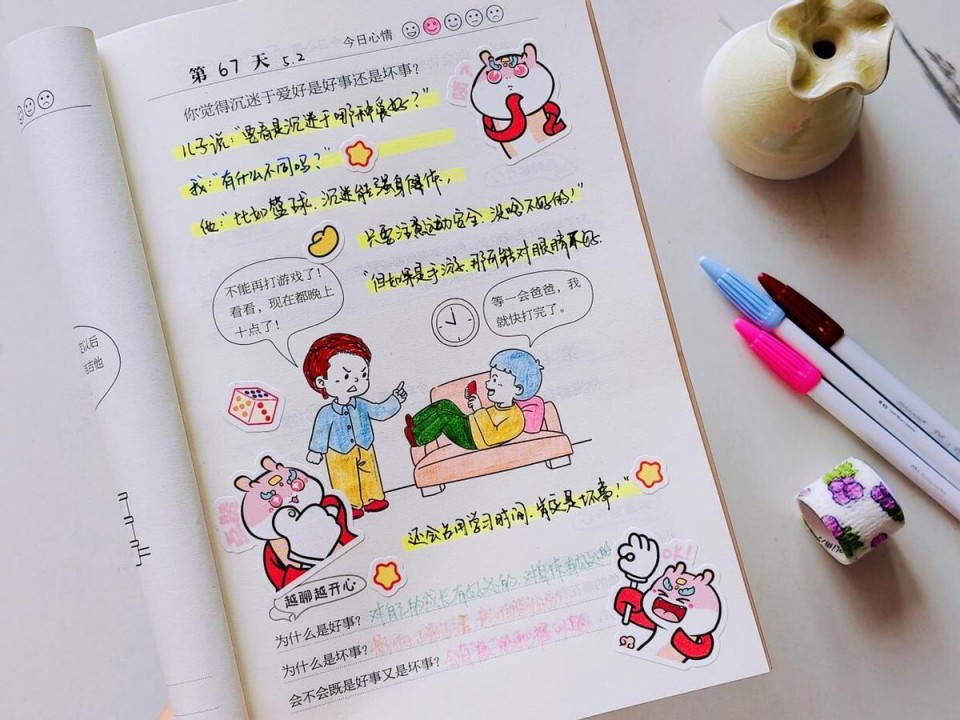 第 67 天 5.2
今日心情
你觉得沉迷于爱好是好事还是坏事？
儿子说："要看是沉迷于哪种爱好？"
我："有什么不同吗？"
他："比如篮球，沉迷能强身健体，
只要注意运动安全，没啥不好的！"
"但如果是手游，那可能对眼睛不好.
不能再打游戏了！
看看，现在都晚上
十点了！
等一会爸爸，我
就快打完了。
还会占用学习时间，肯定是坏事！"
OK!
越聊越开心
为什么是好事？对自己的成长有好处的，对身体
为什么是坏事？
会不会既是好事又是坏事？会有